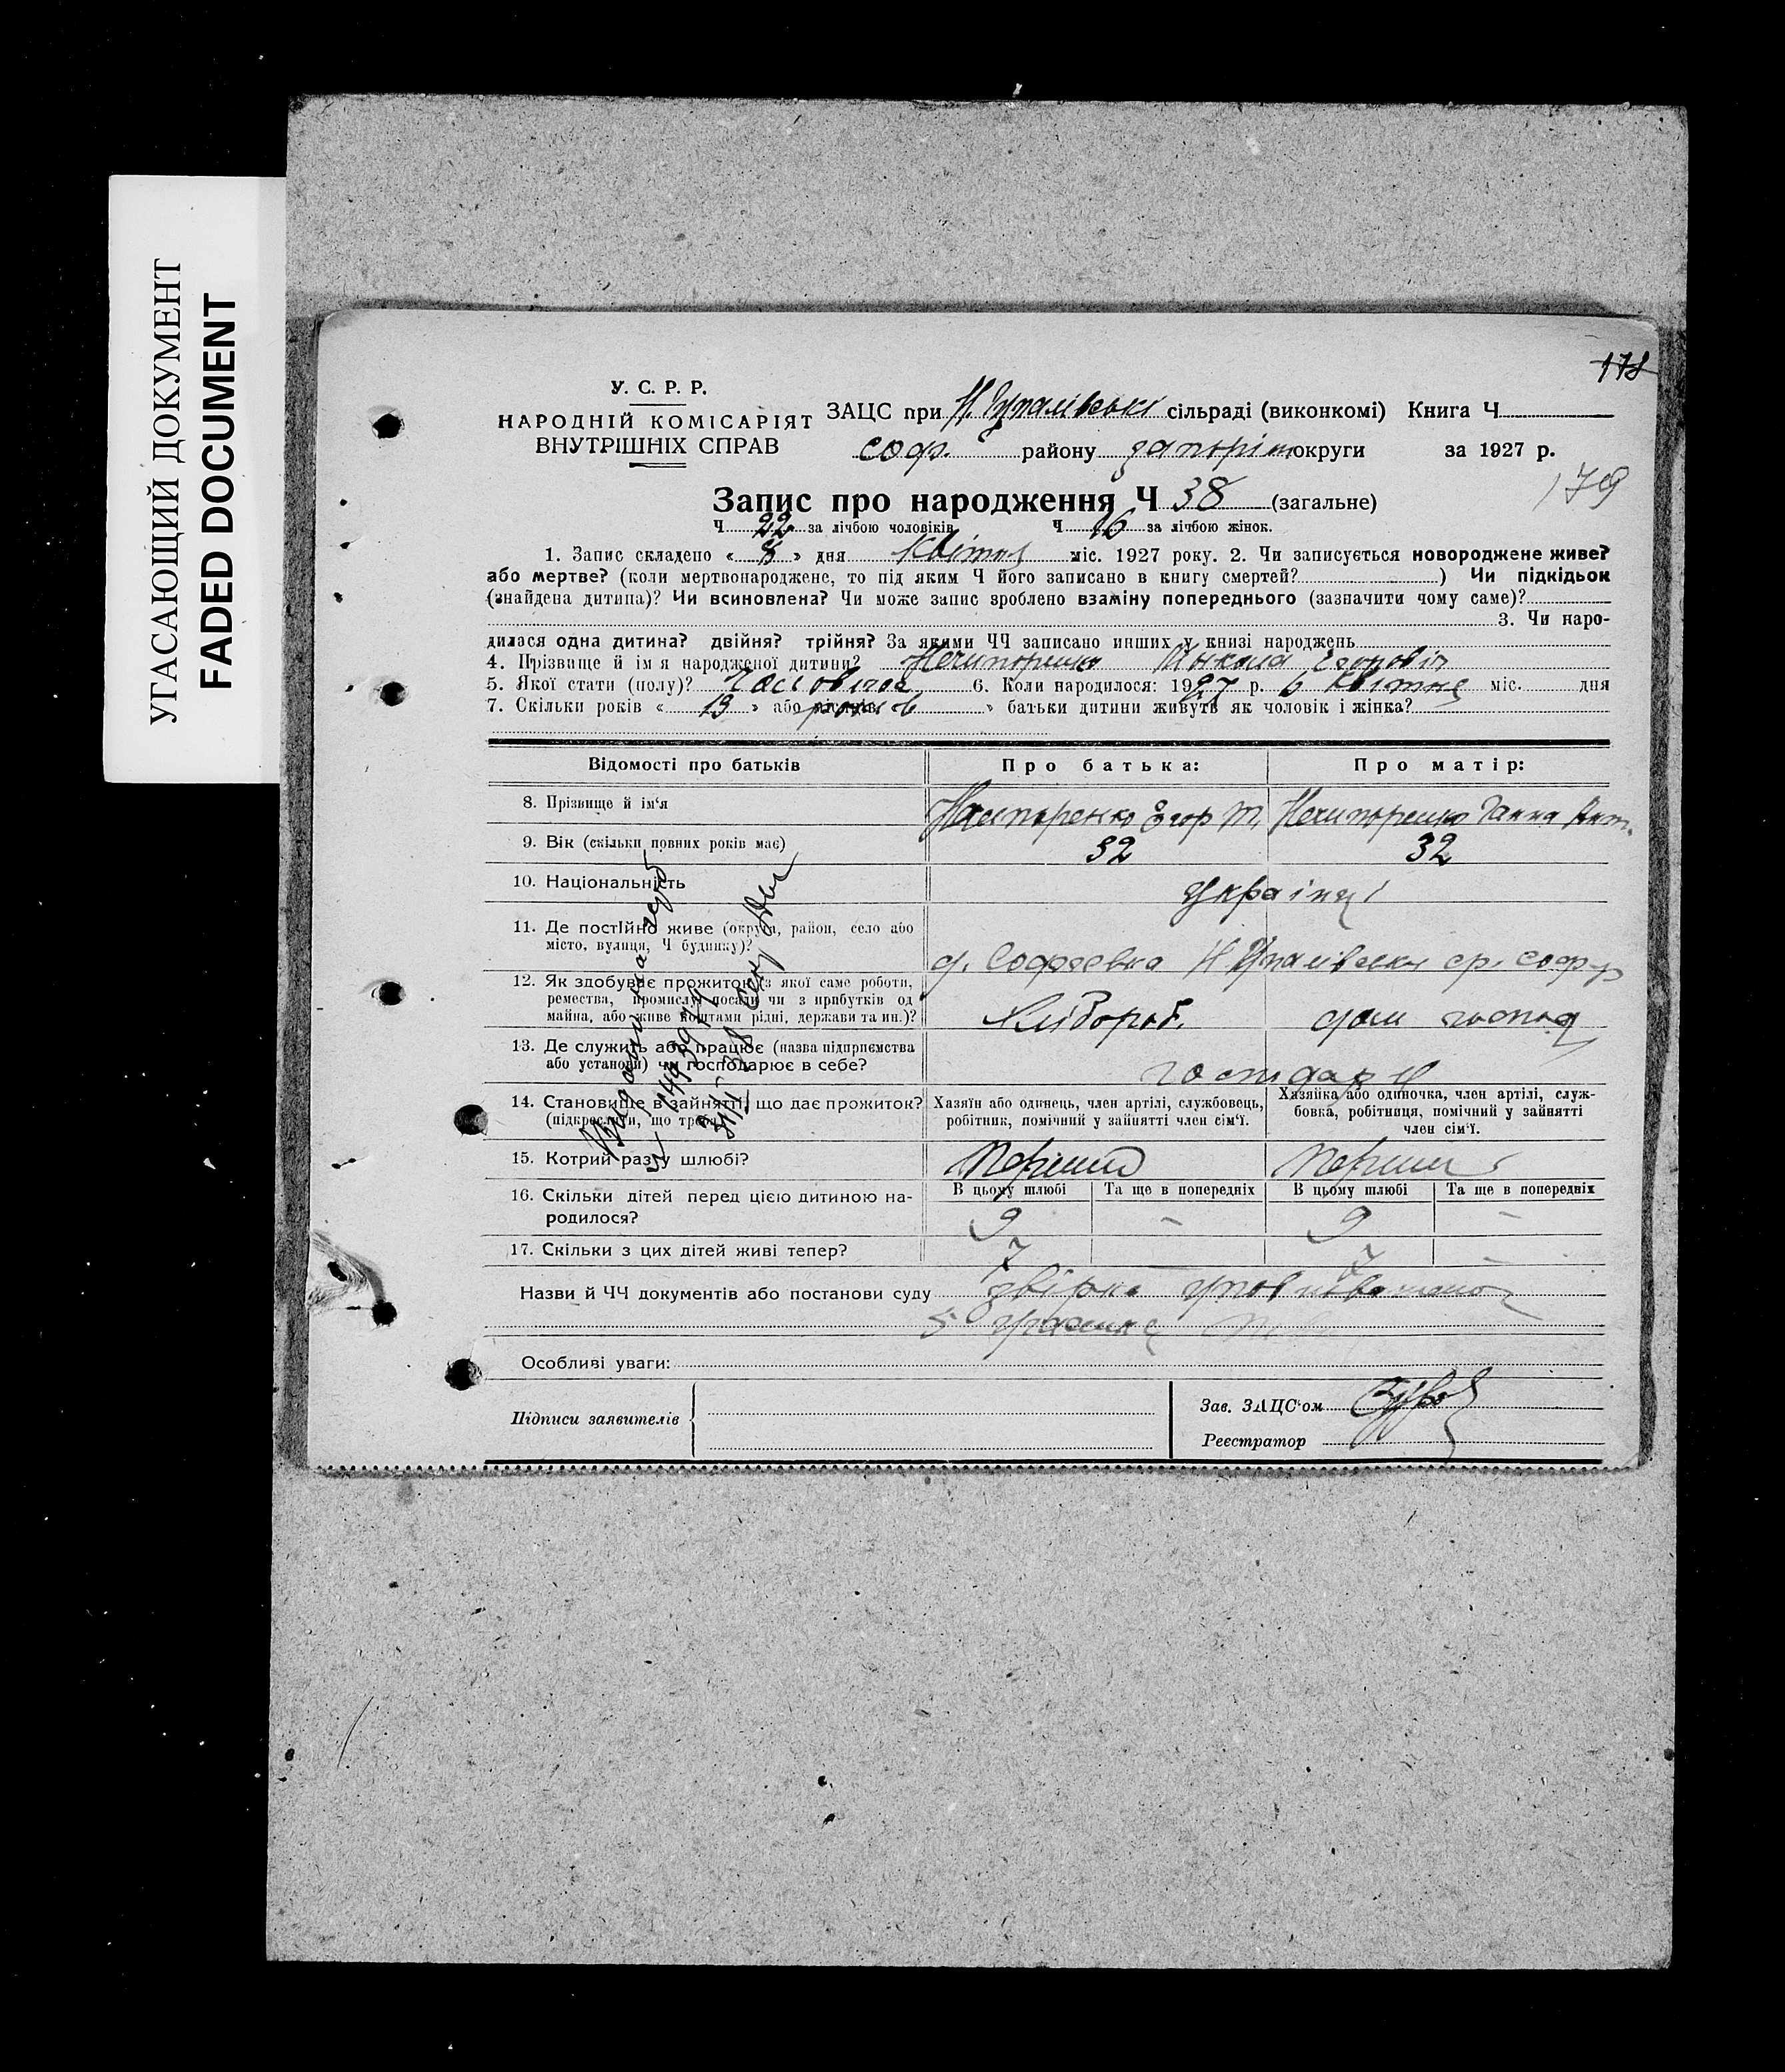 УГАСАЮЩИЙ ДОКУМЕНТ
FADED DOCUMENT
178
У. С. Р. Р.
НАРОДНІЙ КОМІСАРІЯТ
ВНУТРІШНІХ СПРАВ
ЗАЦС при сільраді (виконкомі) Книга Ч
соф. району запоріж округи за 1927 р.
179
Запис про народження Ч 38 (загальне)
Ч 22 за лічбою чоловіків Ч 16 за лічбою жінок.
1. Запис складено « 8 » дня Квітня міс. 1927 року. 2. Чи записується новороджене живе?
або мертве? (коли мертвонароджене, то під яким Ч його записано в книгу смертей? ) Чи підкідьок
(знайдена дитина)? Чи всиновлена? Чи може запис зроблено взаміну попереднього (зазначити чому саме)?
3. Чи наро-
дилася одна дитина? двійня? трійня? За якими ЧЧ записано инших у книзі народжень
4. Прізвище й імя народженої дитини? Нечипоренко Микола Егоровіч
5. Якої стати (полу)? 6. Коли народилося: 1927 р. 6 Квітня міс. дня
7. Скільки років « 13 » або років » батьки дитини живуть як чоловік і жінка?
Відомості про батьків Про батька: Про матір:
8. Прізвище й ім'я Нечипоренко Егор Т. Нечипоренко Ганна Ант.
9. Вік (скільки повних років має) 32 32
10. Національність Українці
11. Де постійно живе (округа, район, село або
місто, вулиця, Ч будинку)? Софіевка
12. Як здобуває прожиток (з якої саме роботи,
ремества, промислу, посади чи з прибутків од
майна, або живе коштами рідні, держави та ин.)? Хлібороб. дом господ
13. Де служить або працює (назва підприємства
або установи) чи господарює в себе? господар
14. Становище в зайнятті, що дає прожиток?
(підкреслити, що треба)
Хазяїн або одинець, член артілі, службовець,
робітник, помічний у зайнятті член сім'ї.
Хазяйка або одиночка, член артілі, служ-
бовка, робітниця, помічний у зайнятті
член сім'ї.
15. Котрий раз у шлюбі? Перший Перший
16. Скільки дітей перед цією дитиною на-
родилося?
В цьому шлюбі Та ще в попередніх В цьому шлюбі Та ще в попередніх
9 - 9 -
17. Скільки з цих дітей живі тепер? 7 7 -
Назви й ЧЧ документів або постанови суду
Особливі уваги:
Підписи заявителів
Зав. ЗАЦС'ом
Реєстратор